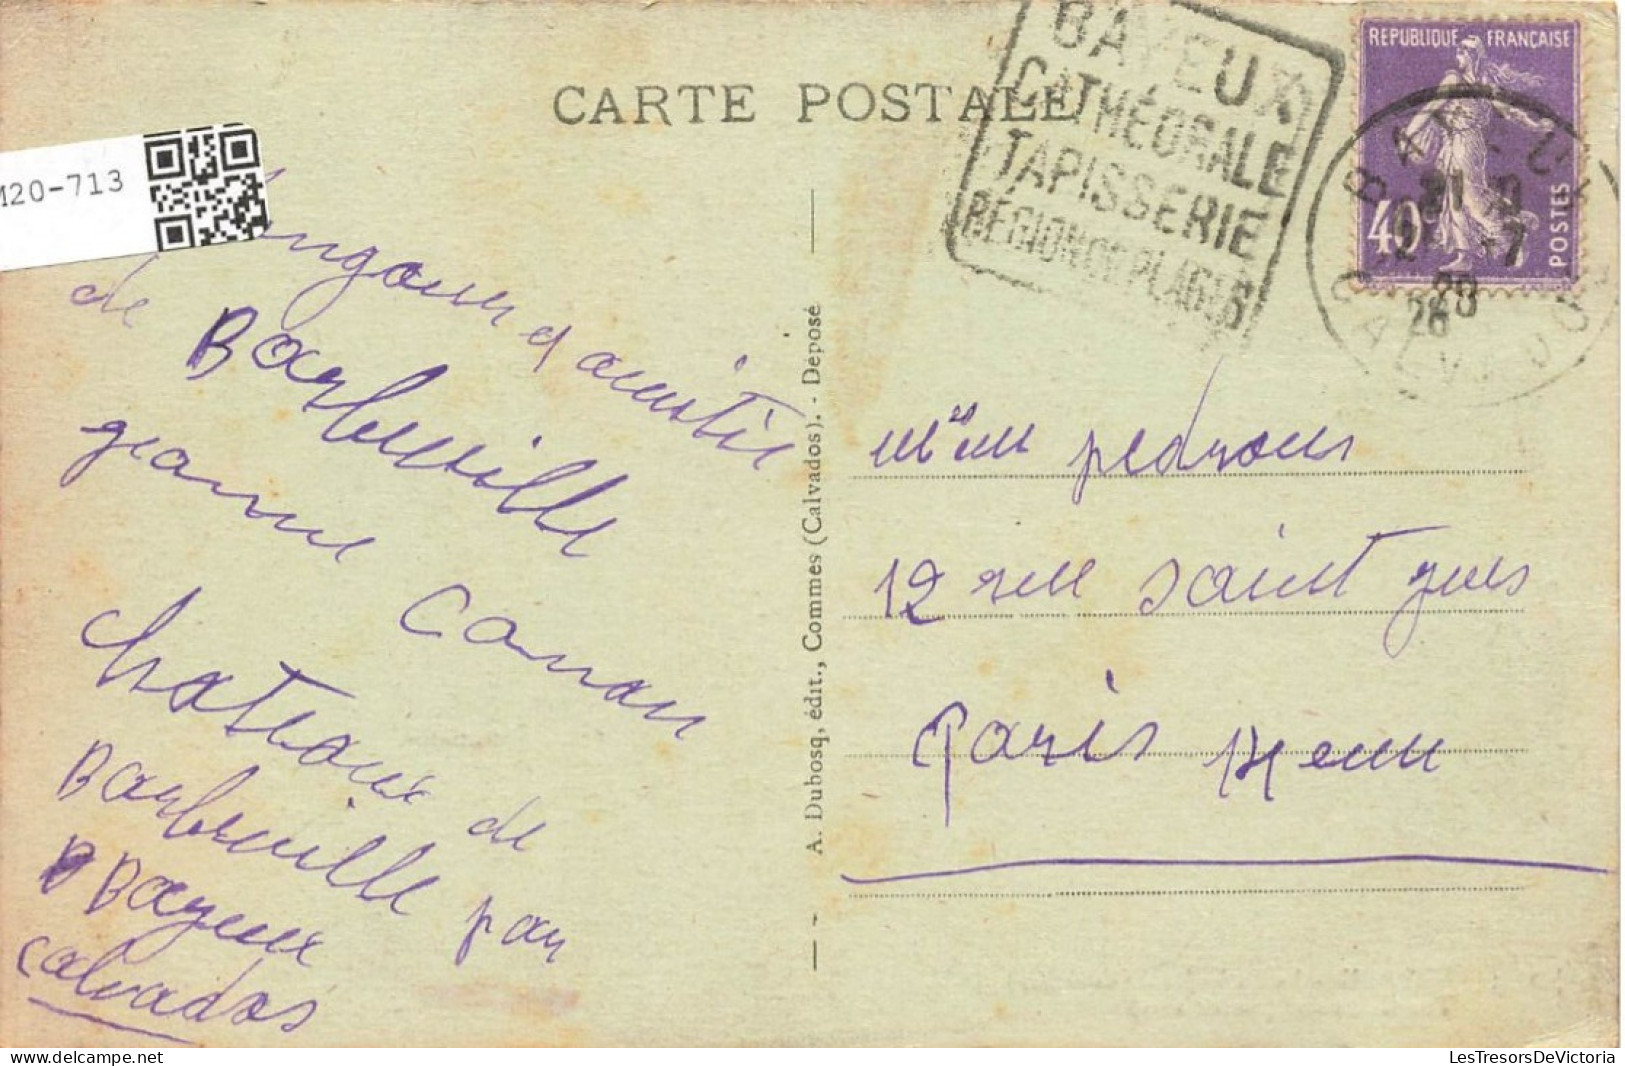 CARTE POSTALE
BAYEUX
CATHÉDRALE
TAPISSERIE
RÉGION DE PLAGES
REPUBLIQUE FRANÇAISE
40c
POSTES
BAYEUX
-7
28
CALVADOS
M20-713
d'amitié
de Barbeville
jeanne Canan
chateaux de
Barbeville par
Bayeux
calvados
A. Dubosq, édit., Commes (Calvados). - Déposé
pedrono
12 rue saint yves
Paris 14eme
LesTresorsDeVictoria